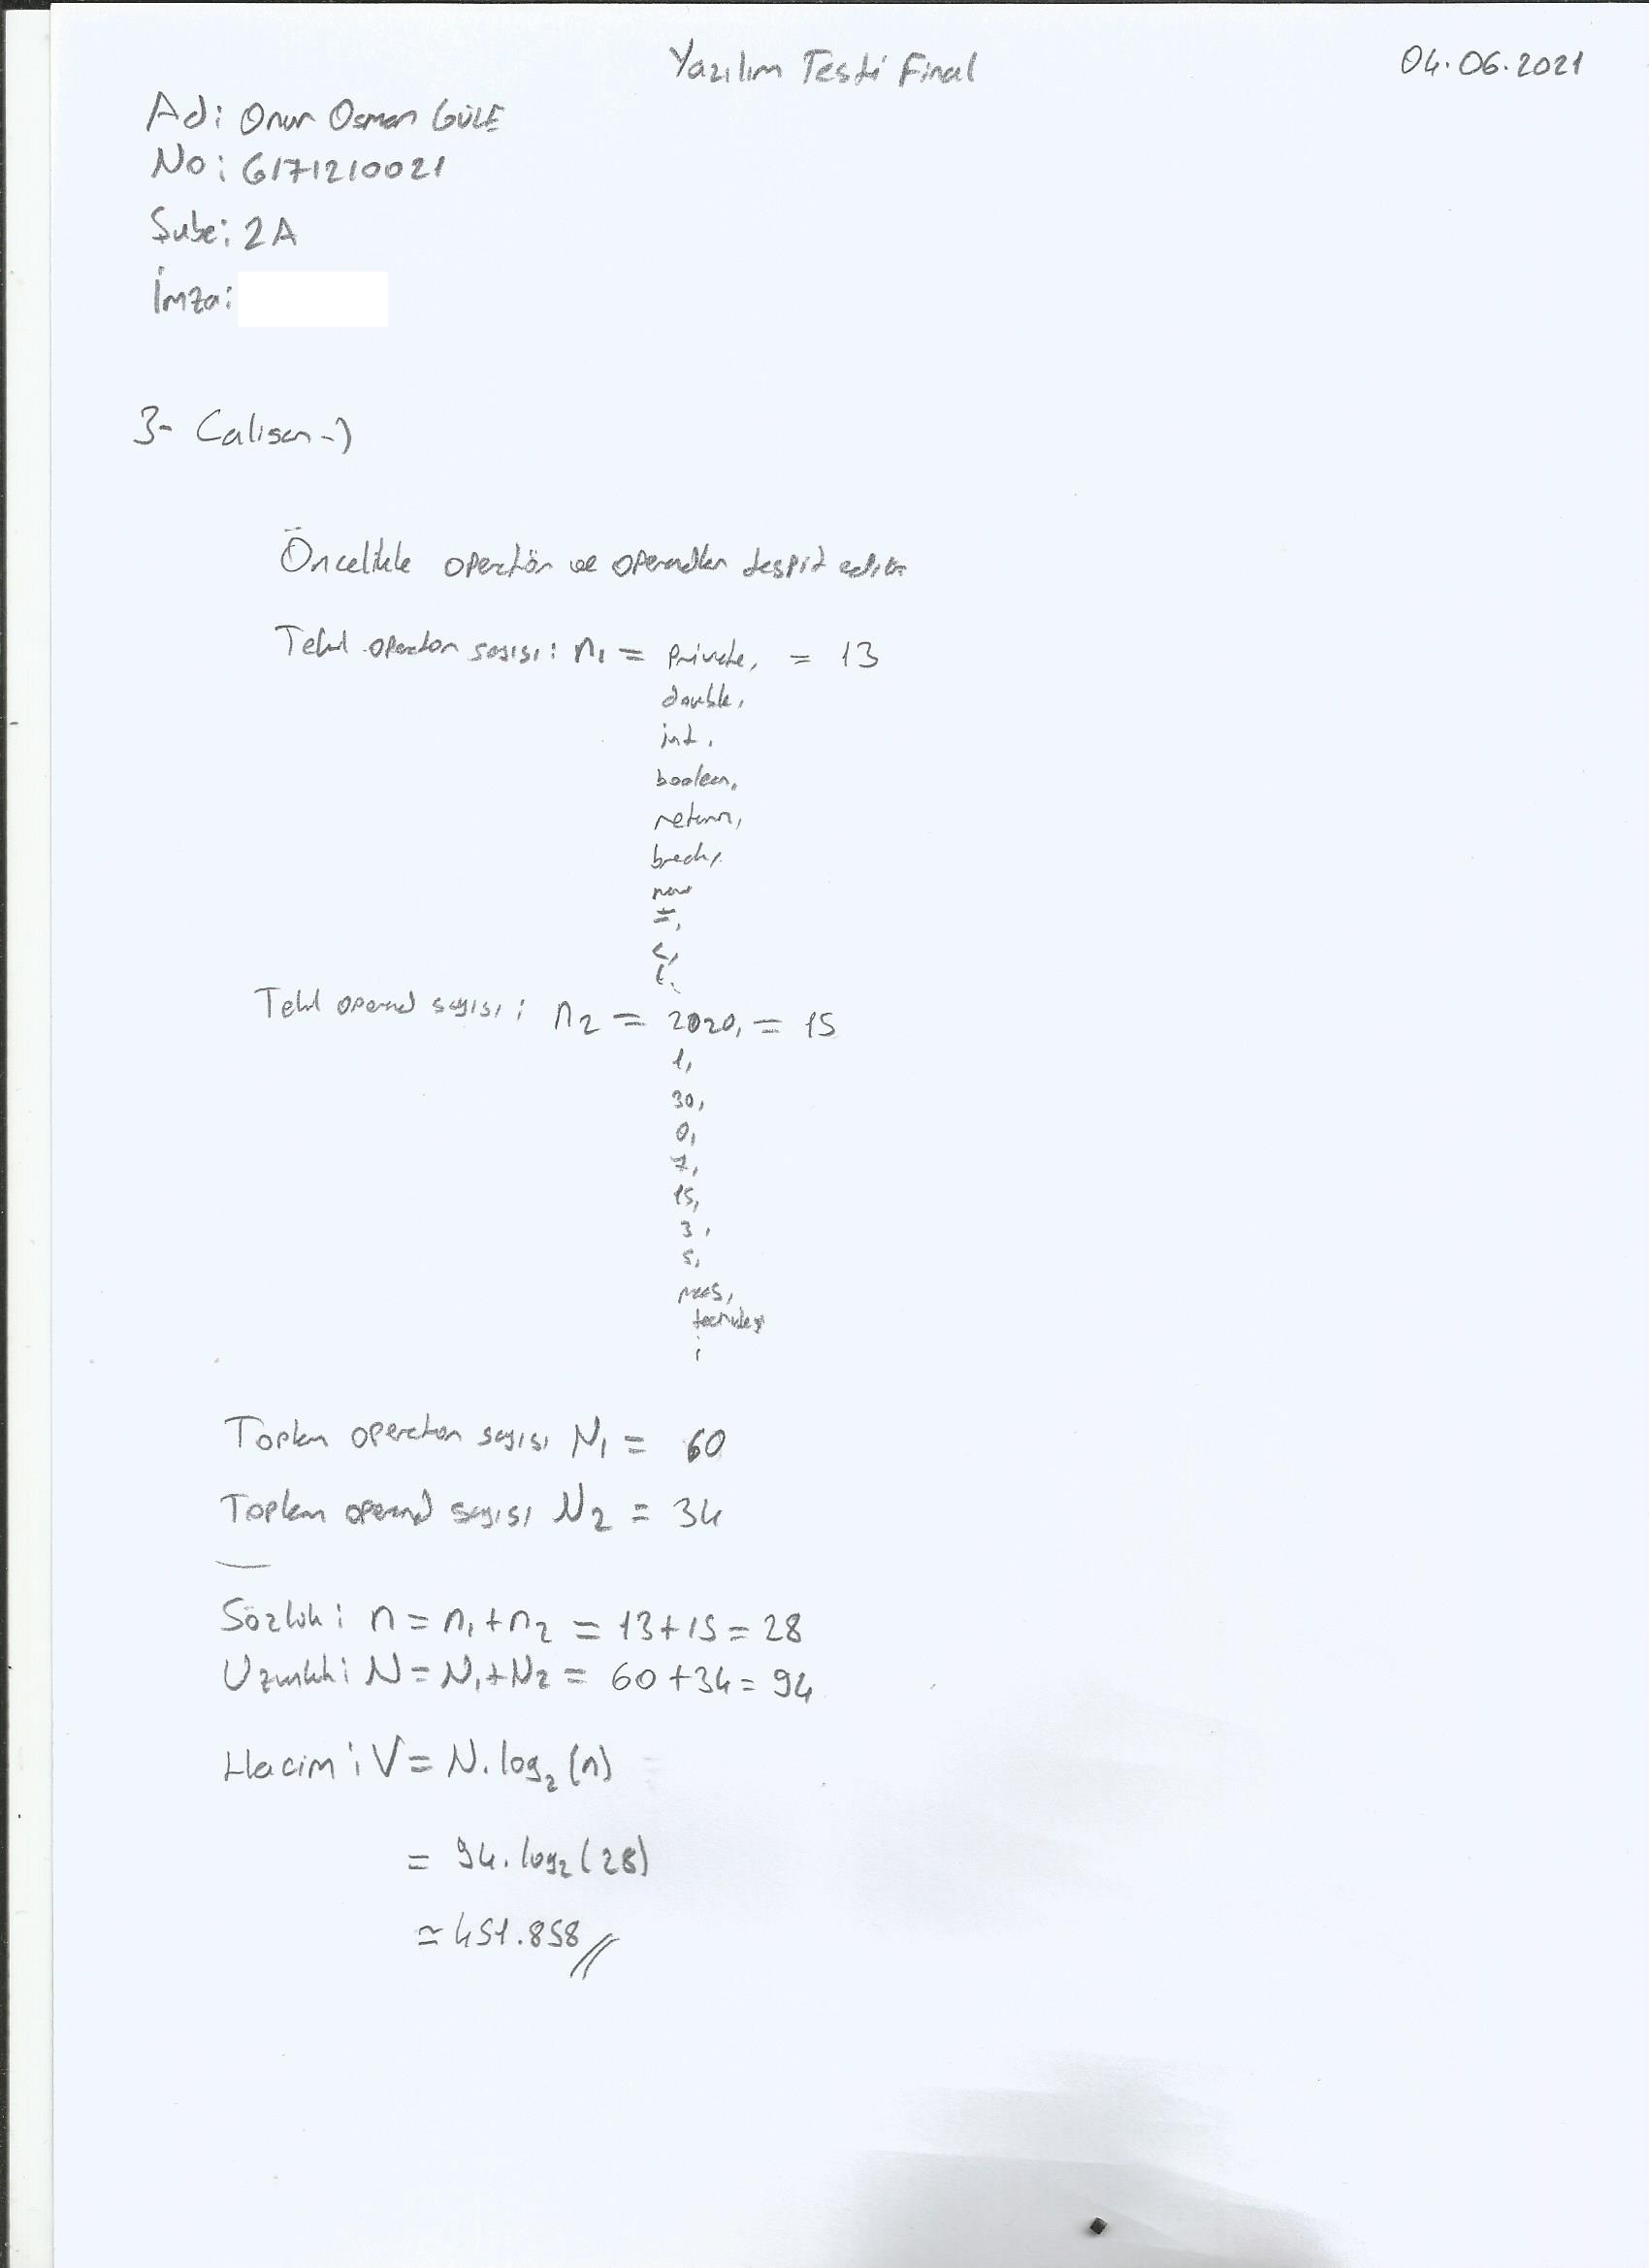 Yazılım Testi Final
04.06.2021
Adı: Onur Osman GÜLE
No: G171210021
Şube: 2A
İmza:
3- Calisan →
Öncelikle operatör ve operandlar tespit edilir
Tekil operator sayısı: n₁ = private, = 13
double,
int,
boolean,
return,
break,
new
=,
<,
(,
Tekil operand sayısı: n₂ = 2020, = 15
1,
30,
0,
7,
15,
3,
5,
maas,
i
Toplam operator sayısı N₁ = 60
Toplam operand sayısı N₂ = 34
Sözlük: n = n₁+n₂ = 13+15 = 28
Uzunluk: N = N₁+N₂ = 60+34 = 94
Hacim: V = N.log₂(n)
= 94.log₂(28)
≃ 451.858//